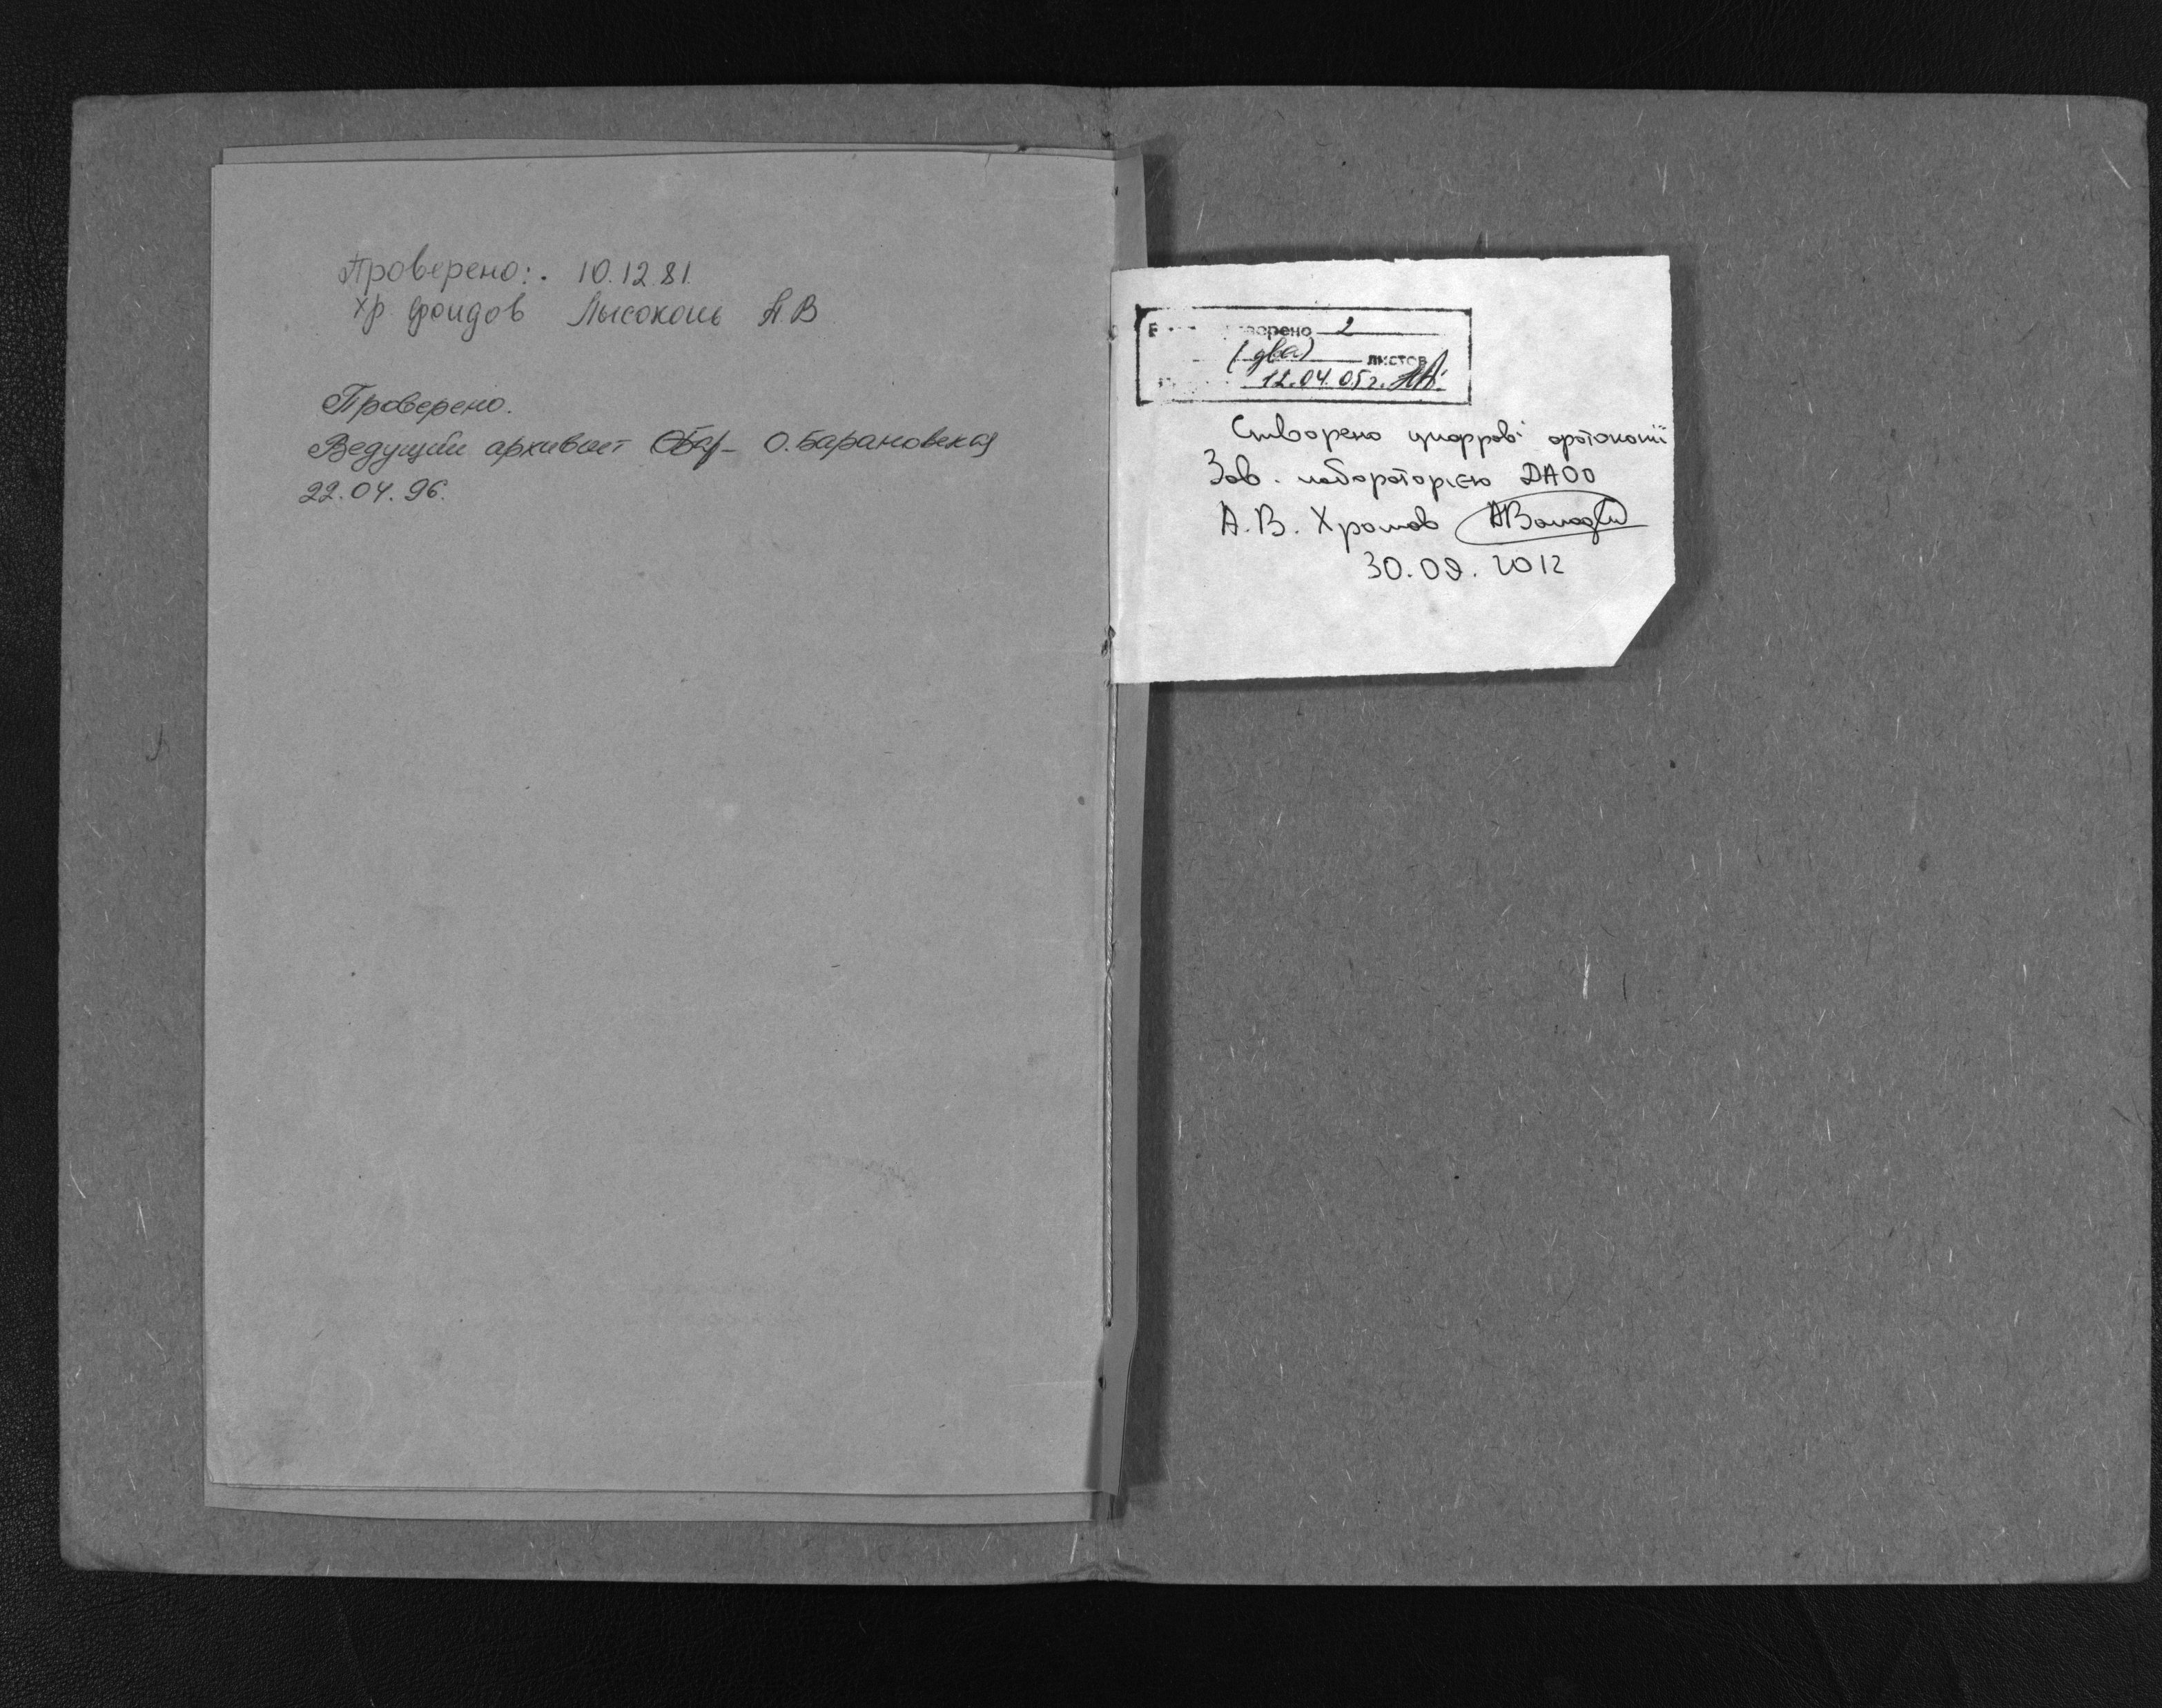 Проверено: 10.12.81
Хр фондов Лысоконь А В
Проверено.
Ведущий архивист О. Барановская
22.04.96.
2
(два) листов
12.04.05г.
Створено цифрові фотокопії
Зав. лабораторією ДАОО
А. В. Хромов
30.09.2012